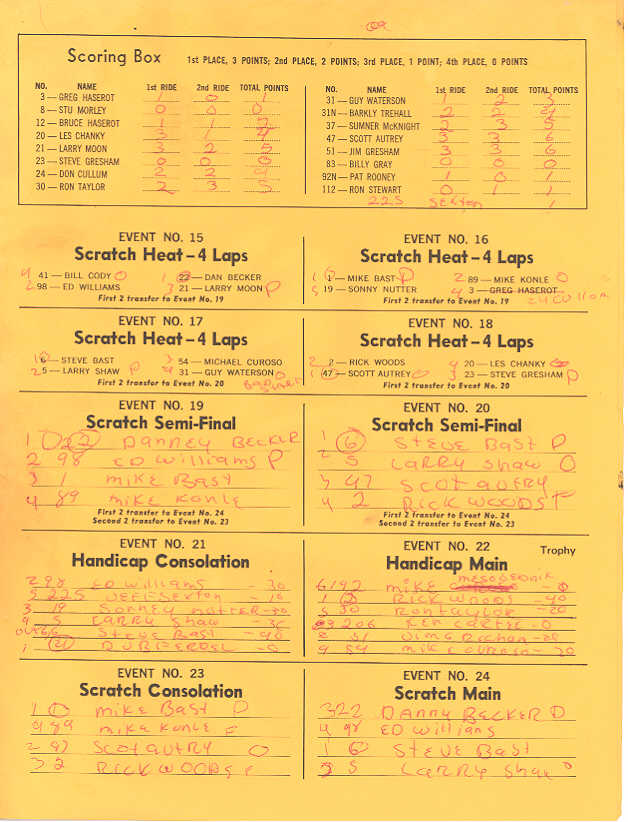 Scoring Box 1st PLACE, 3 POINTS; 2nd PLACE, 2 POINTS; 3rd PLACE, 1 POINT; 4th PLACE, 0 POINTS
NO. NAME 1st RIDE 2nd RIDE TOTAL POINTS
3—GREG HASEROT 1 0 1
8—STU MORLEY 0 0 0
12—BRUCE HASEROT 1 1 2
20—LES CHANKY 3 1 4
21—LARRY MOON 3 2 5
23—STEVE GRESHAM 0 0 0
24—DON CULLUM 2 2 4
30—RON TAYLOR 2 3 5
NO. NAME 1st RIDE 2nd RIDE TOTAL POINTS
31—GUY WATERSON 1 2 3
31N—BARKLY TREHALL 2 2 4
37—SUMNER McKNIGHT 2 3 5
47—SCOTT AUTREY 3 3 6
51—JIM GRESHAM 3 3 6
83—BILLY GRAY 0 0 0
92N—PAT ROONEY 1 0 1
112—RON STEWART 0 1 1
225 SEXTON 1
EVENT NO. 15
Scratch Heat—4 Laps
4 41—BILL CODY O 1 22—DAN BECKER
2 98—ED WILLIAMS 3 21—LARRY MOON P
First 2 transfer to Event No. 19
EVENT NO. 16
Scratch Heat—4 Laps
1 1—MIKE BAST P 2 89—MIKE KONLE O
19—SONNY NUTTER 4 3—GREG HASEROT
First 2 transfer to Event No. 19 24 Cullom
EVENT NO. 17
Scratch Heat—4 Laps
1 6—STEVE BAST 3 54—MICHAEL CUROSO
2 5—LARRY SHAW P 4 31—GUY WATERSON O
First 2 transfer to Event No. 20
EVENT NO. 18
Scratch Heat—4 Laps
2 2—RICK WOODS 4 20—LES CHANKY
1 47—SCOTT AUTREY 3 23—STEVE GRESHAM P
First 2 transfer to Event No. 20
EVENT NO. 19
Scratch Semi-Final
1 22 DANNEY BECKER
2 98 ED WILLIAMS P
3 1 MIKE BAST
4 89 MIKE KONLE
First 2 transfer to Event No. 24
Second 2 transfer to Event No. 23
EVENT NO. 20
Scratch Semi-Final
1 6 STEVE BAST P
2 5 LARRY SHAW O
3 47 SCOT AUTRY
4 2 RICK WOODS
First 2 transfer to Event No. 24
Second 2 transfer to Event No. 23
EVENT NO. 21
Handicap Consolation
2 98 ED WILLIAMS - 30
5 225 JEFF SEXTON - 10
3 19 SONNEY NUTTER - 30
4 5 LARRY SHAW - 30
STEVE BAST - 40
1
EVENT NO. 22 Trophy
Handicap Main
MIKE
1 2 RICK WOODS - 40
5 30 RON TAYLOR - 20
KEN CARTER - 0
2 51 JIM GRESHAN - 20
4 54 MIKE CUROSO - 30
EVENT NO. 23
Scratch Consolation
1 MIKE BAST P
4 89 MIKE KONLE
2 47 SCOT AUTRY O
3 2 RICK WOODS
EVENT NO. 24
Scratch Main
3 22 DANNY BECKER O
4 98 ED WILLIAMS
1 6 STEVE BAST
2 5 LARRY SHAW